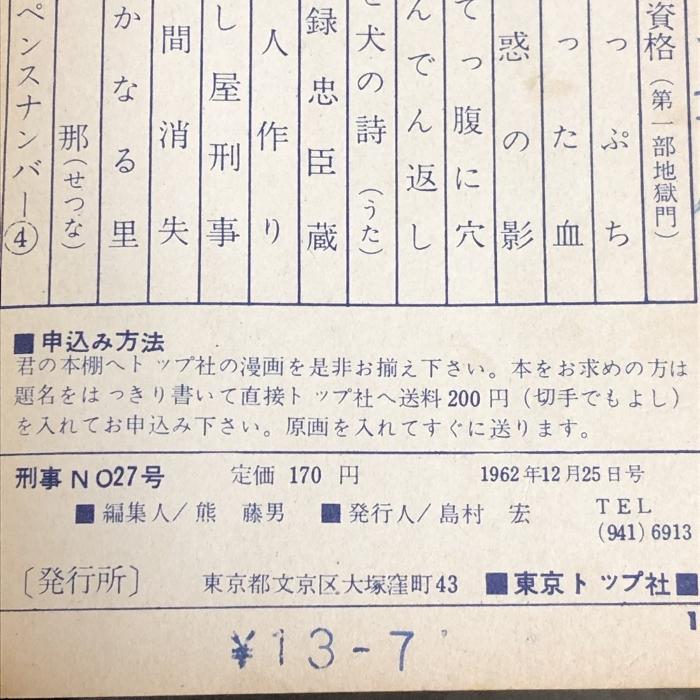 資格（第一部地獄門）
っぷち
った血
惑の影
てっ腹に穴
んでん返し
と犬の詩（うた）
録忠臣蔵
人作り
し屋刑事
間消失
かなる里
那（せつな）
ペンスナンバー④
■申込み方法
君の本棚へトップ社の漫画を是非お揃え下さい。本をお求めの方は
題名をはっきり書いて直接トップ社へ送料200円（切手でもよし）
を入れてお申込み下さい。原画を入れてすぐに送ります。
刑事NO27号 定価 170 円 1962年12月25日号
■編集人／熊 藤男 ■発行人／島村 宏 TEL
(941) 6913
〔発行所〕 東京都文京区大塚窪町43 ■東京トップ社■
1
¥13-7